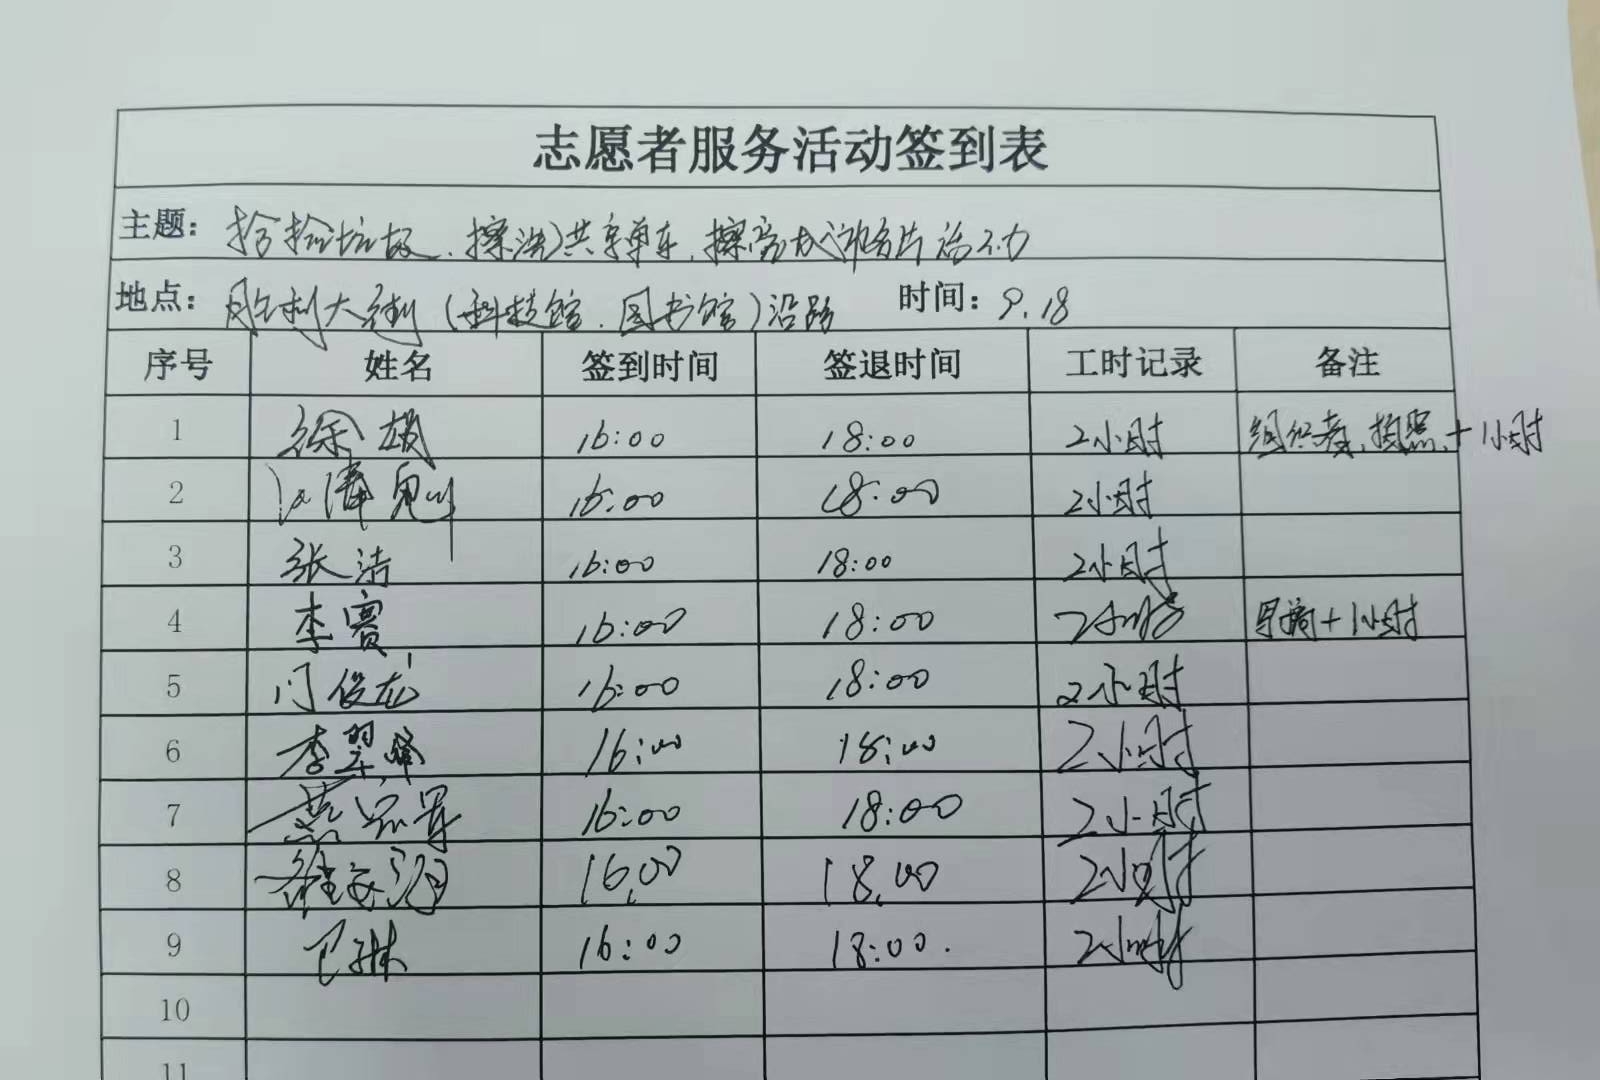 志愿者服务活动签到表
主题：捡拾垃圾、擦洗共享单车，擦亮
地点：胜利大街（科技馆、图书馆）沿路 时间：9.18
序号 姓名 签到时间 签退时间 工时记录 备注
1 徐斌 16:00 18:00 2小时 组织者、拍照、+1小时
2 16:00 18:00 2小时
3 张洁 16:00 18:00 2小时
4 李赛 16:00 18:00 2小时 +1小时
5 门俊龙 16:00 18:00 2小时
6 李翠峰 16:00 18:00 2小时
7 16:00 18:00 2小时
8 16:00 18:00 2小时
9 16:00 18:00. 2小时
10
11